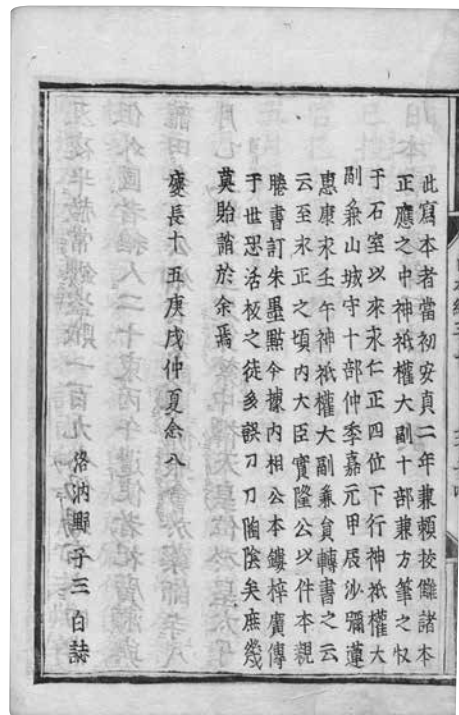 此寫本者當初安貞二年兼賴校讎諸本
正應之中神祇權大副卜部兼方筆之收
于石室以來永仁正四位下行神祇權大
副兼山城守卜部仲季嘉元甲辰沙彌蓮
惠康永壬午神祇權大副兼員轉書之云
云至永正之頃內大臣實隆公以件本親
騰書訂朱墨點今據內相公本鏤梓廣傳
于世恐活板之徒多誤刀刁陶陰矣庶幾
莫貽誚於余焉
慶長十五庚戌仲夏念八
洛汭野子三白誌